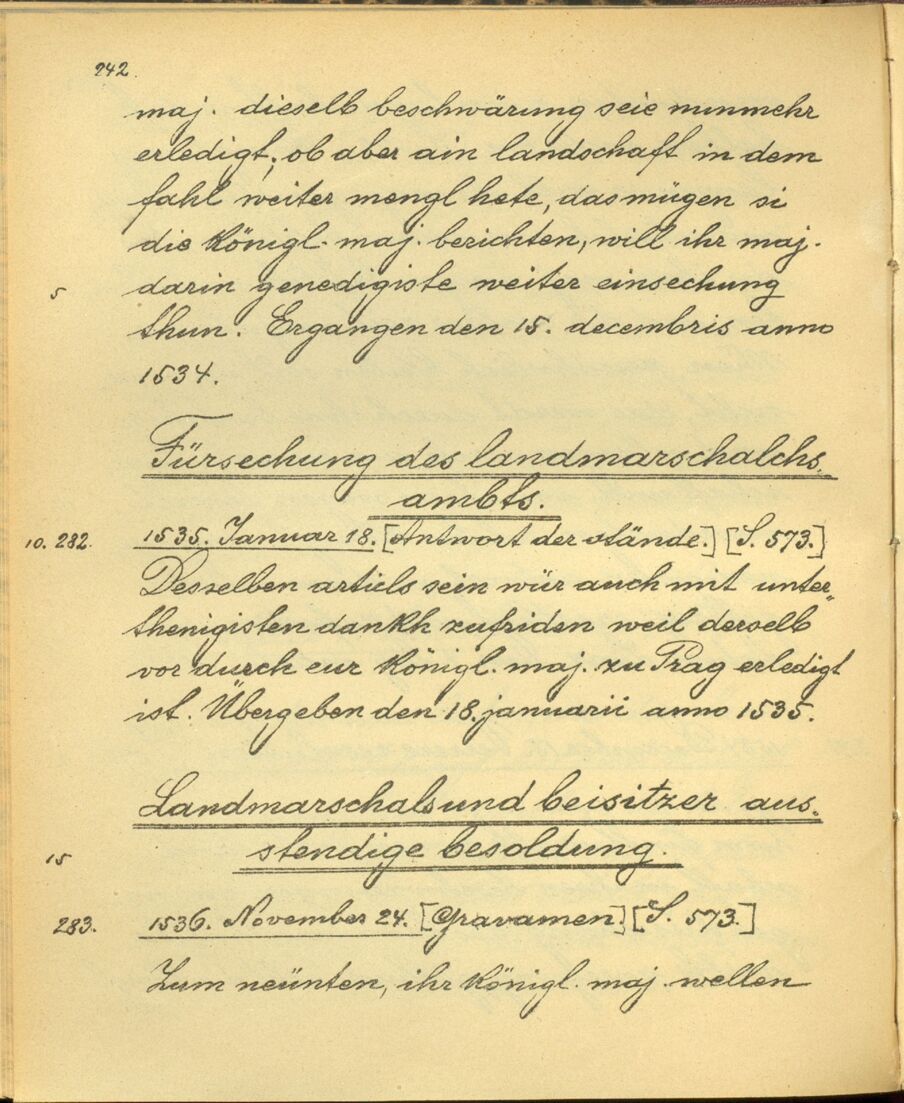 242.
maj. dieselb beschwärung seie nunmehr
erledigt; ob aber ain landschaft in dem
fahl weiter mengl hete, das mügen si
die Königl. maj. berichten, will ihr maj.
5 darin genedigiste weiter einsechung
thun. Ergangen den 15. decembris anno
1534.
Fürsechung des landmarschalchs-
ambts.
10. 282. 1535. Januar 18. [Antwort der stände.] [S. 573.]
Desselben articls sein wür auch mit unter„
thenigisten dankh zufriden weil derselb
vor durch eur Königl. maj. zu Prag erledigt
ist. Übergeben den 18. januarii anno 1535.
Landmarschals und beisitzer aus-
15 stendige besoldung.
283. 1536. November 24. [Gravamen.] [S. 573.]
Zum neünten, ihr Königl. maj. wellen